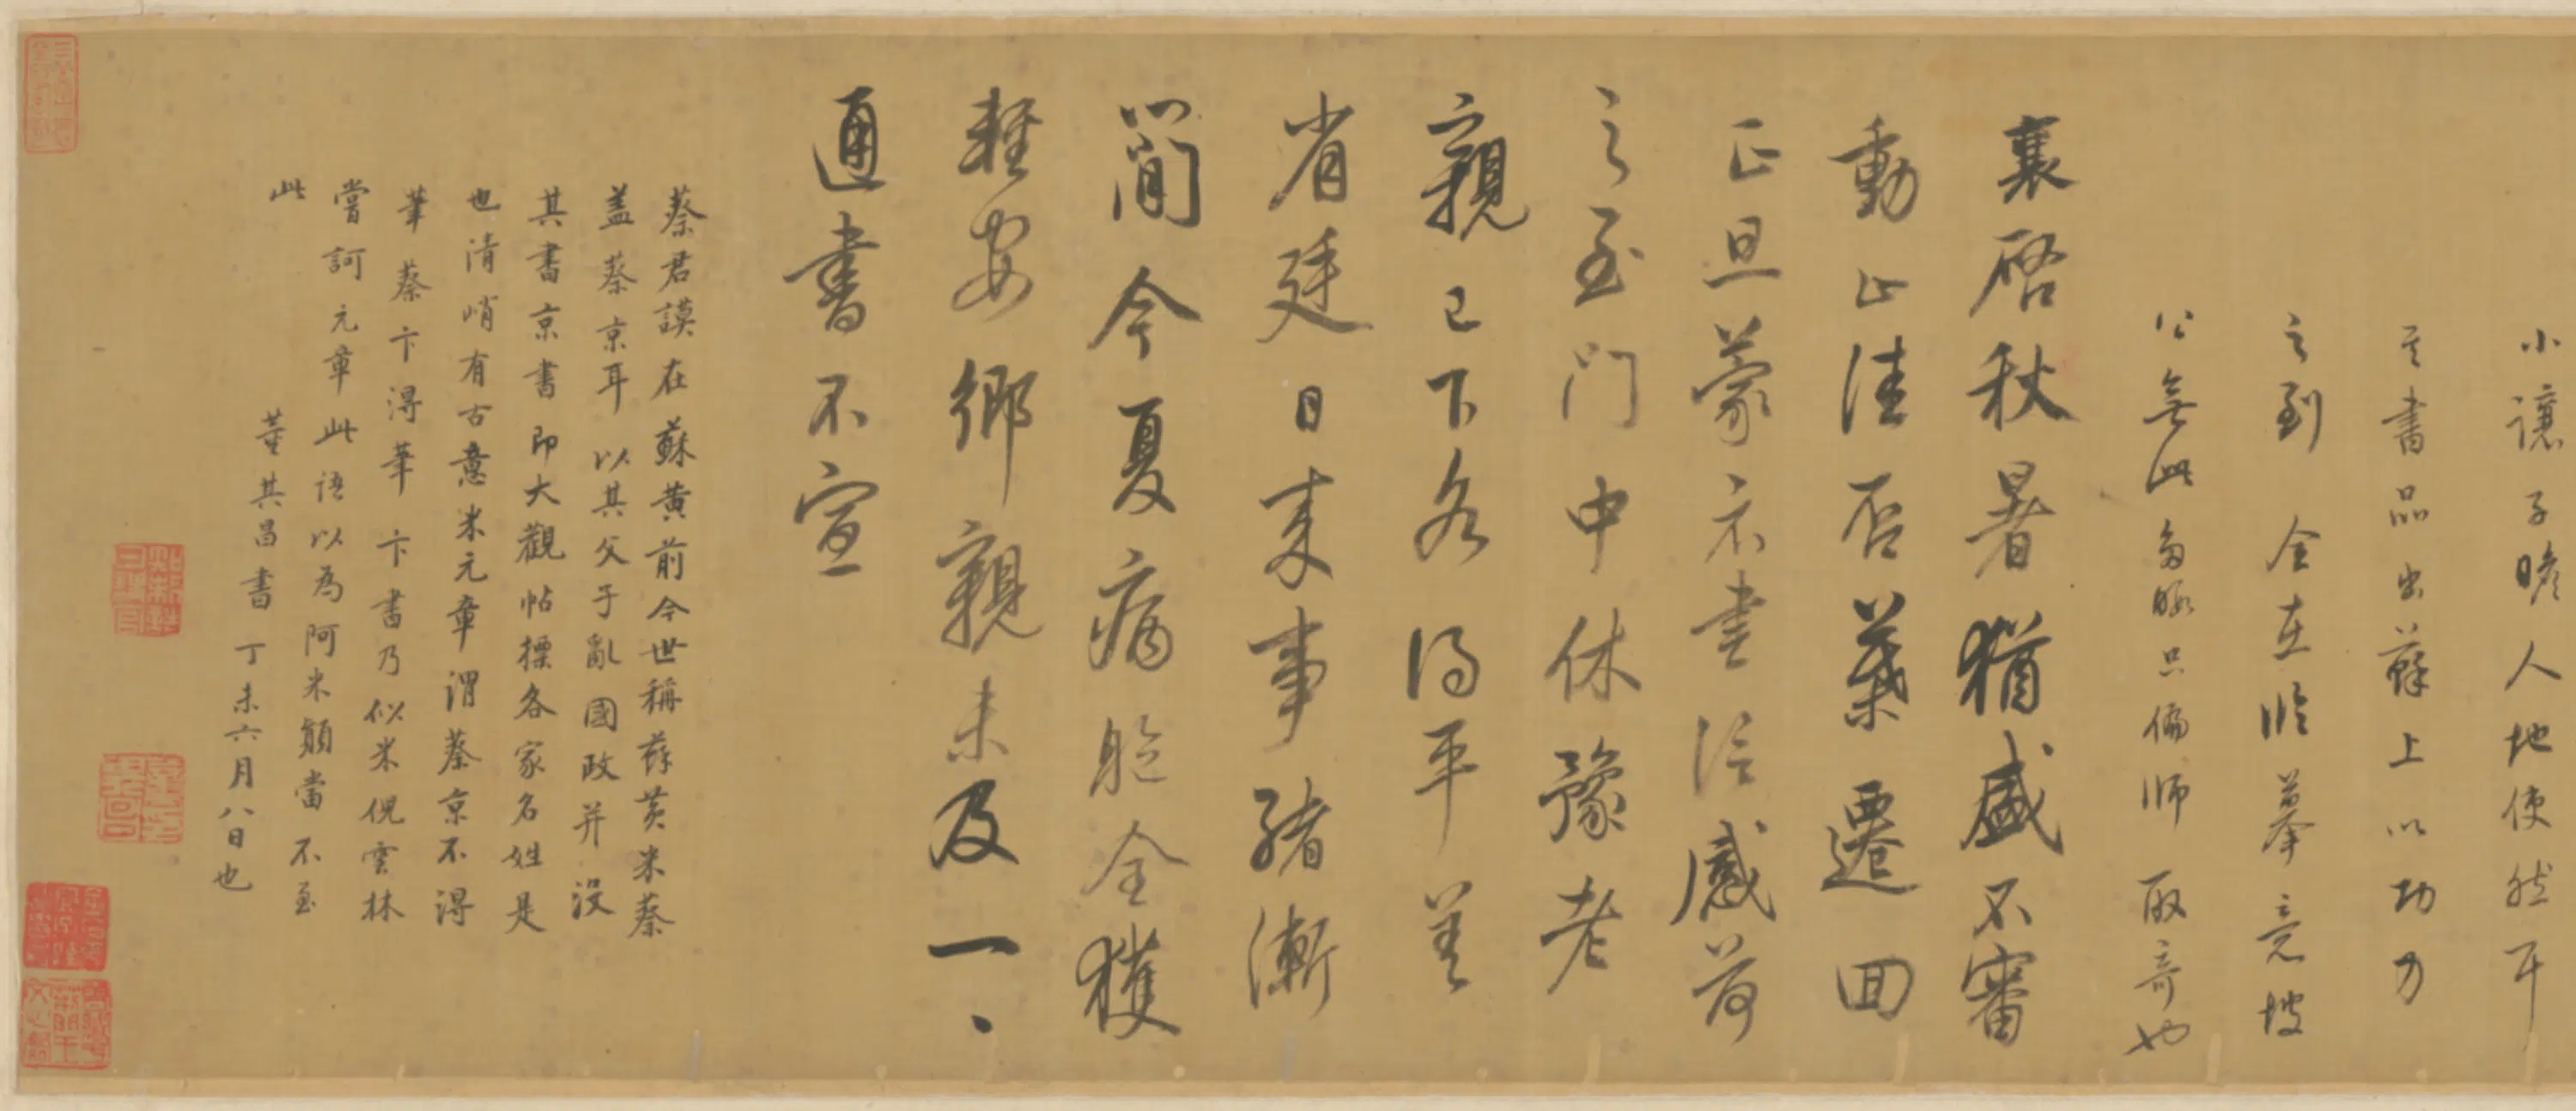 小讓子瞻人地使然耳
其書品出蘇上以功力
之到全在臨摹意坡
公無此勇脈只偏師取奇也
襄啓秋暑猶盛不審
動止佳否葉遷回
正旦蒙示書訊感荷
之至門中休豫老
親已下各得平善
省廷日來事緒漸
簡今夏病軀全獲
輕安鄉親未及一、
通書不宣
蔡君謨在蘇黃前今世稱蘇黃米蔡
蓋蔡京耳以其父子亂國政并沒
其書京書即大觀帖標各家名姓是
也清峭有古意米元章謂蔡京不得
筆蔡卞得筆卞書乃似米倪雲林
嘗訶元章此語以為阿米顛當不至
此
董其昌書丁未六月八日也